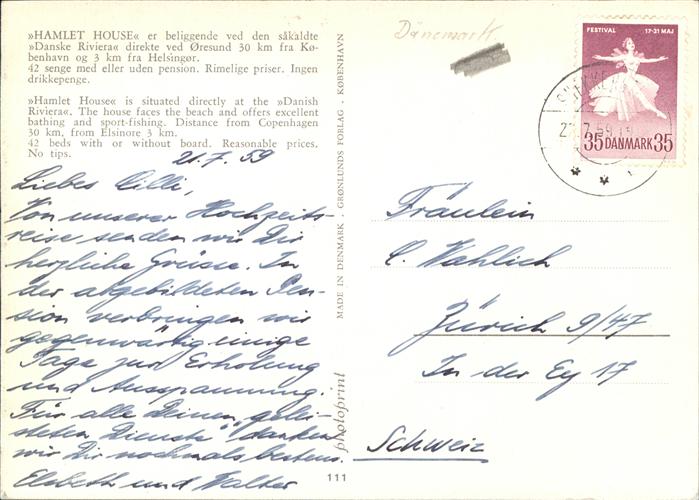 »HAMLET HOUSE« er beliggende ved den såkaldte
»Danske Riviera« direkte ved Øresund 30 km fra Kø-
benhavn og 3 km fra Helsingør.
42 senge med eller uden pension. Rimelige priser. Ingen
drikkepenge.
»Hamlet House« is situated directly at the »Danish
Riviera«. The house faces the beach and offers excellent
bathing and sport-fishing. Distance from Copenhagen
30 km, from Elsinore 3 km.
42 beds with or without board. Reasonable prices.
No tips.
21.7.59
Liebes Cilli,
Von unserer Hochzeits-
reise senden wir Dir
herzliche Grüsse. In
der abgebildeten Pen-
sion verbringen wir
gegenwärtig einige
Tage zur Erholung
und Ausspannung.
Für alle Deinen gelei-
steten Dienste danken
wir Dir nochmals bestens.
Elsbeth und Walter
MADE IN DENMARK . GRØNLUNDS FORLAG . KØBENHAVN
photoprint
111
Dänemark
FESTIVAL 17-31 MAJ
35 DANMARK 35
7.59
Fräulein
C. Wahlich
Zürich 9/47
In der Ey 17
Schweiz